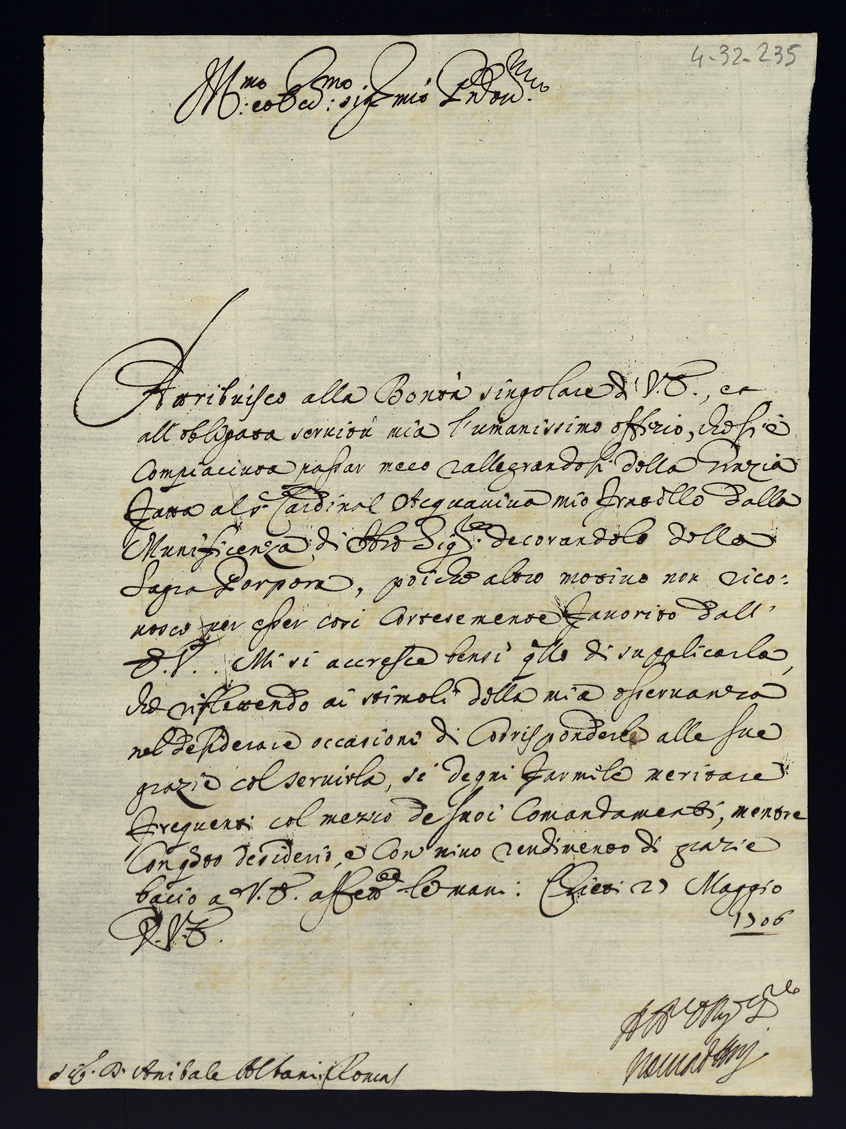 4-32-235
Ill.mo e Ecc.mo Sig.r mio P.ron
Attribuisco alla Bontà singolare di V.E., et
all'obligata servitù mia l'umanissimo offizio, che si è
compiaciuta passar meco rallegrandosi della Grazia
fatta al S.r Cardinal Acquaviva mio fratello dalla
Munificenza di Nro Sig.re decorandolo della
Sagra Porpora, poiche altro motivo non rico=
nosco per esser così cortesemente favorito dall'
E.V. Mi si accresce bensì qllo di supplicarla,
che riflettendo ai stimoli della mia osservanza
nel desiderare occasioni di corrisponderle alle sue
grazie col servirla, si degni farmile meritare
frequenti col mezzo de suoi Comandamenti, mentre
con qsto desiderio, e con vivo rendimento di grazie
bacio a V.E. affett. le mani. Chieti 27 Maggio
1706
D.V.E.
Sig. D. Anibale Albani Roma